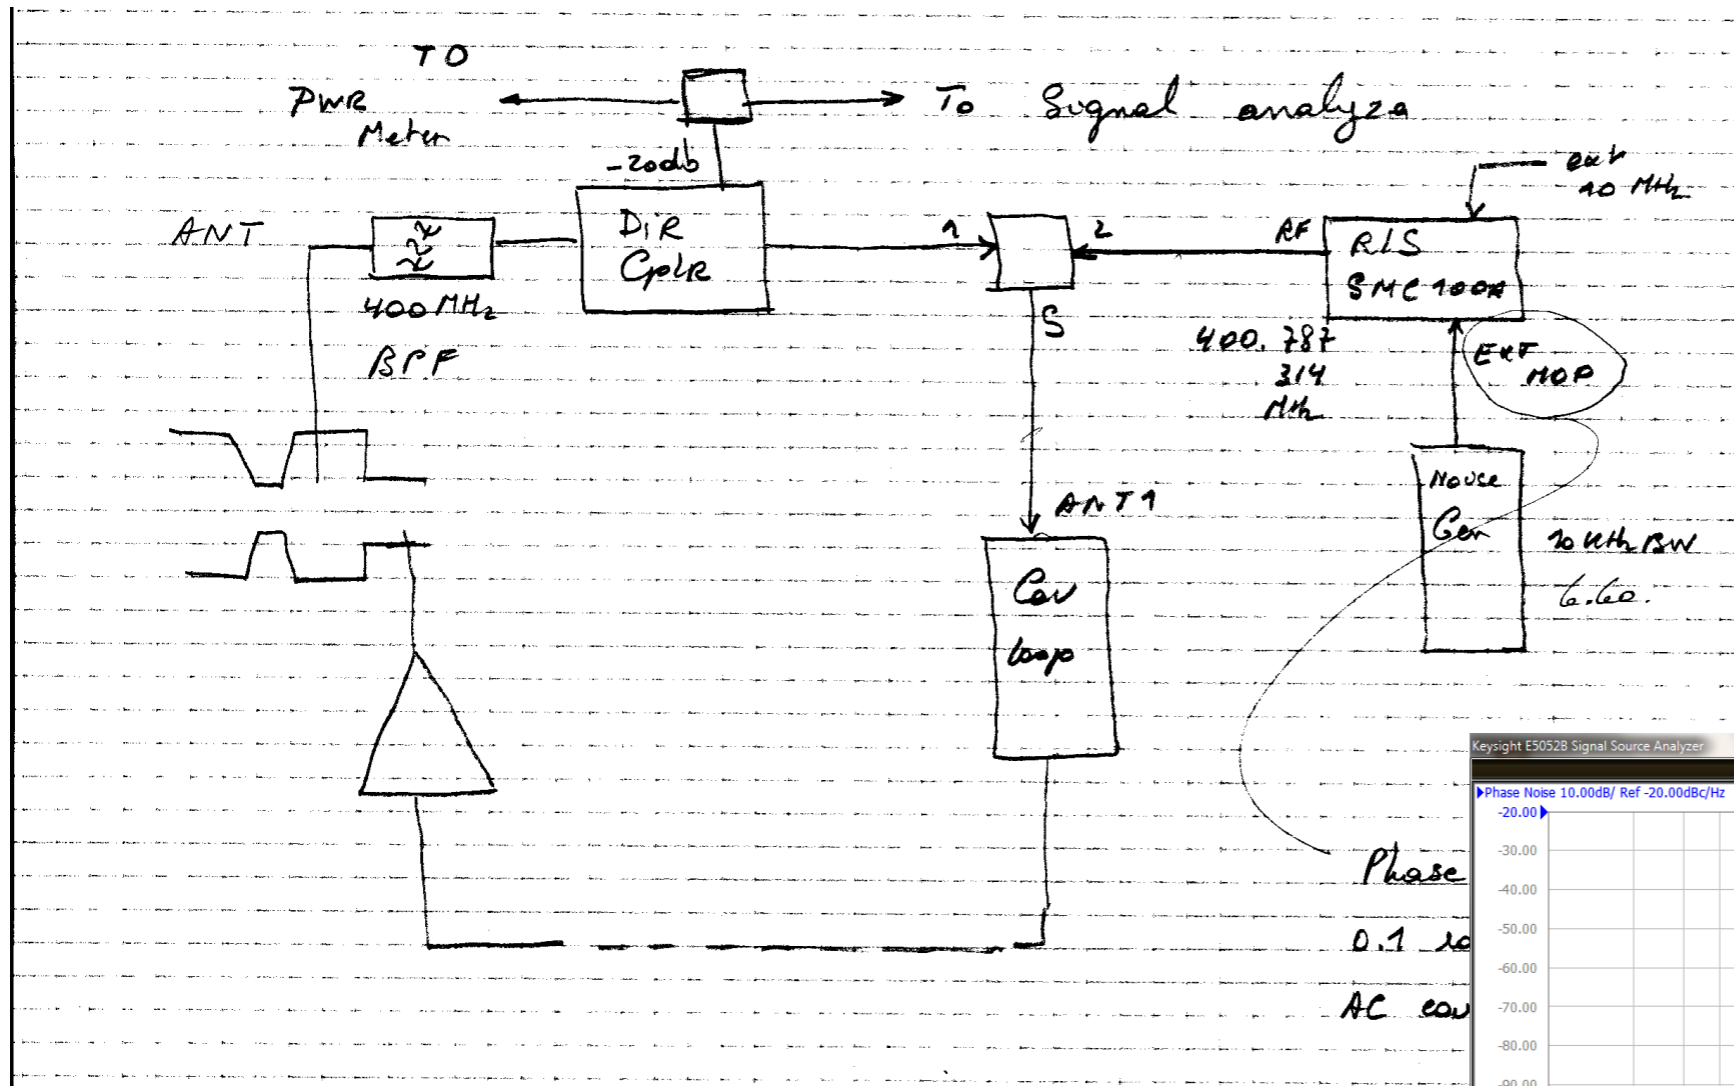 TO
PWR
Meter
To Signal analyza
-20db
ext
10 MHz
ANT
DiR
CplR
1
2
RF
R/S
SMC 100A
400 MHz
BPF
S
400.787
314
MHz
EXT
MOD
ANT1
Noise
Gen
10 KHz BW
Cav
loop
Phase
0.1
AC
Keysight E5052B Signal Source Analyzer
Phase Noise 10.00dB/ Ref -20.00dBc/Hz
-20.00
-30.00
-40.00
-50.00
-60.00
-70.00
-80.00
-90.00